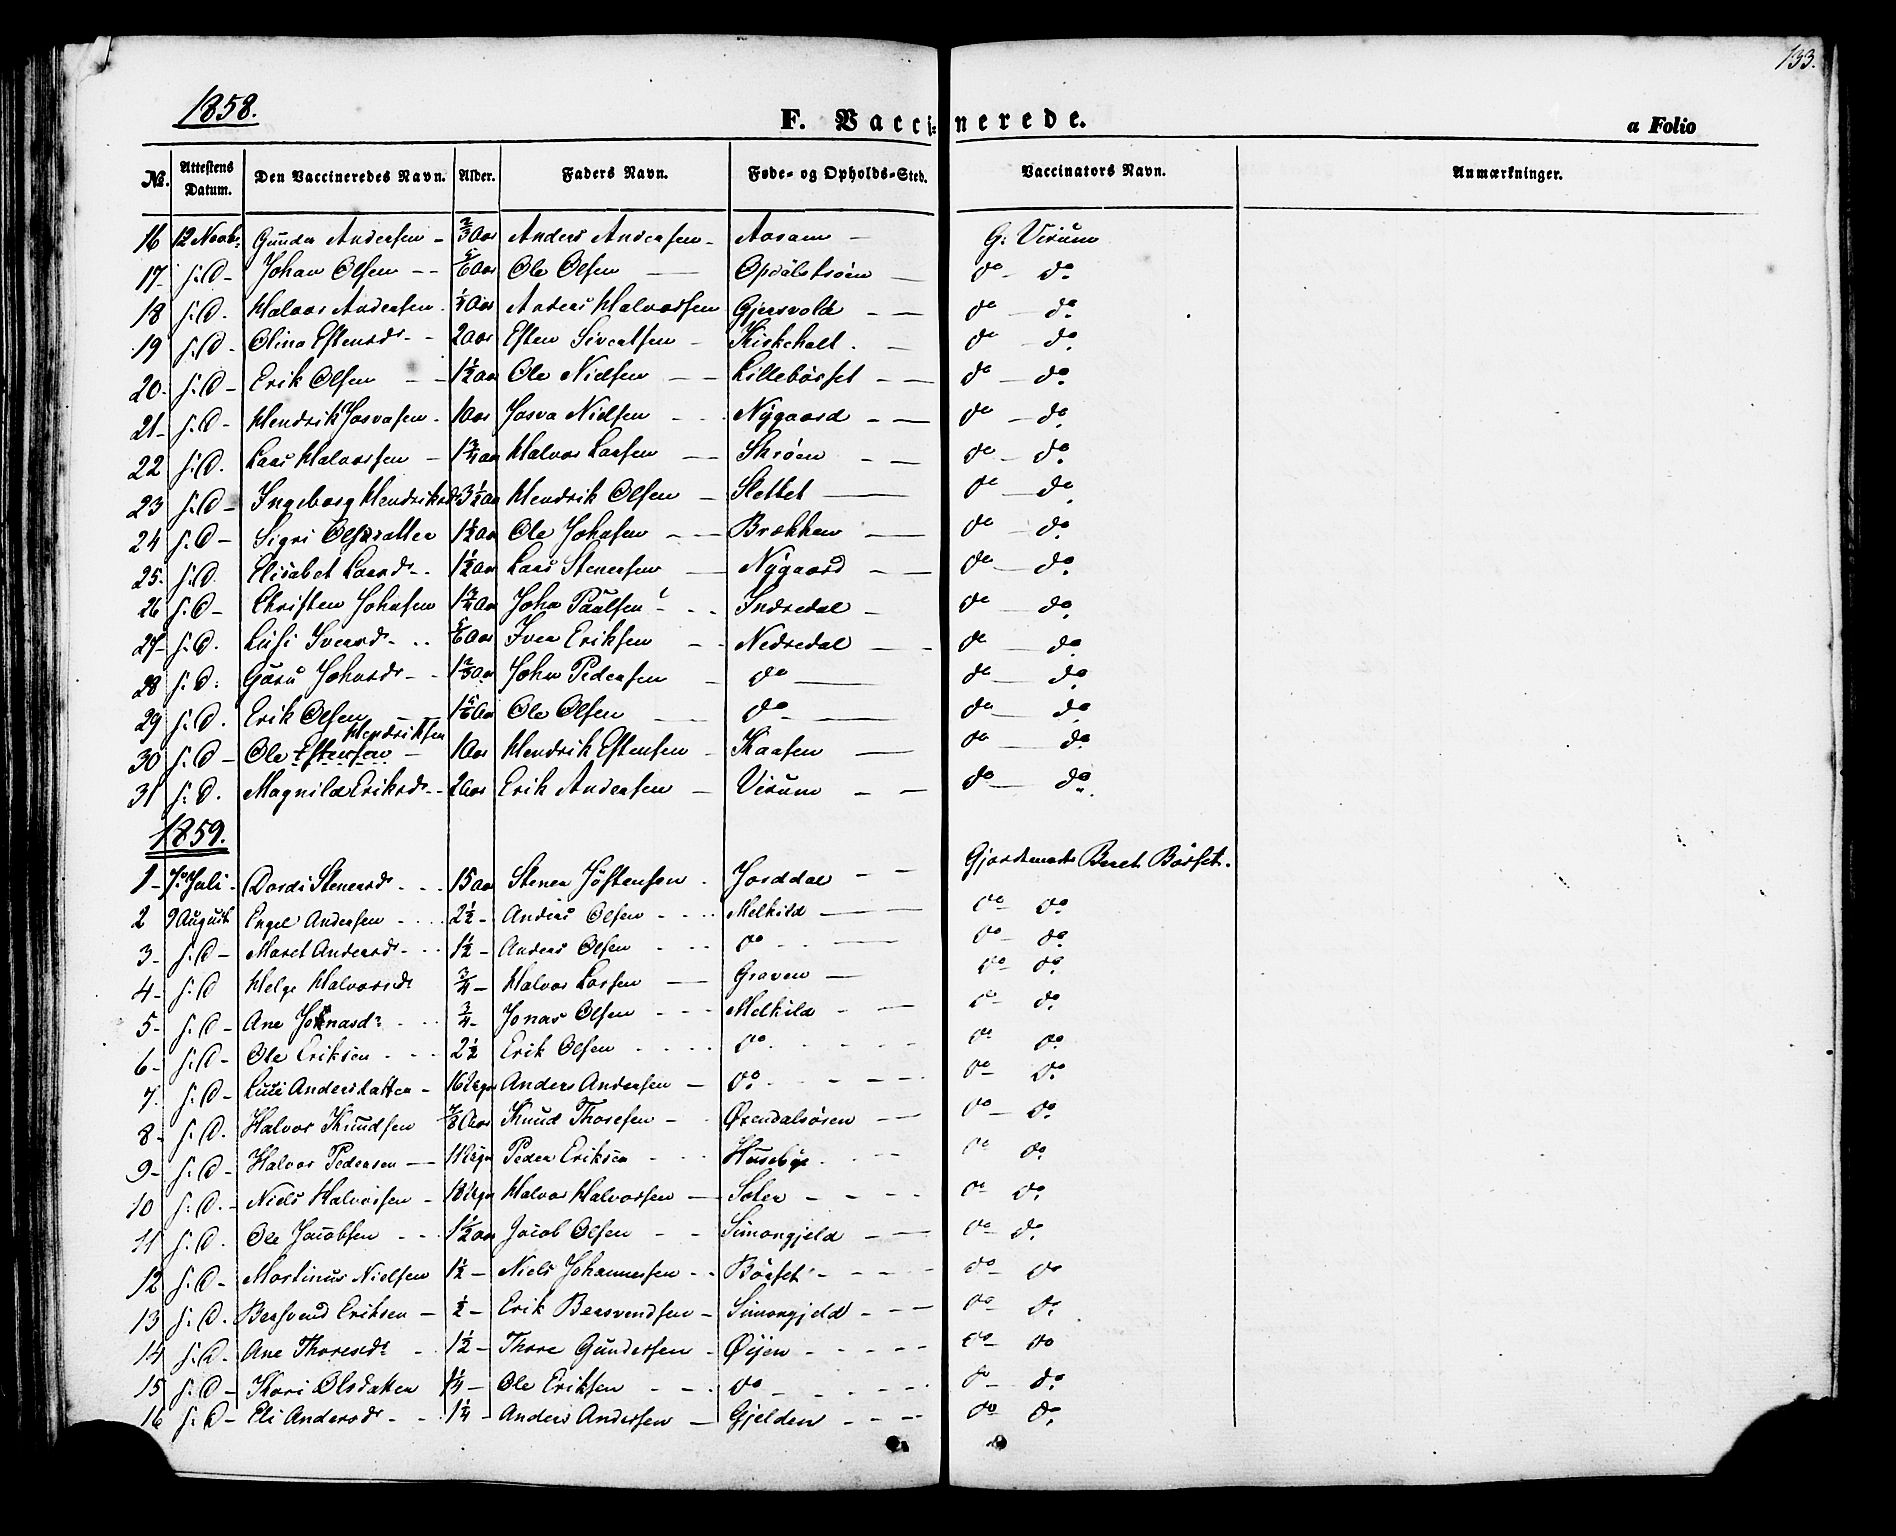 133.
1858.
F. Vaccinerede.
a Folio
No. Attestens Datum. Den Vaccineredes Navn. Alder. Faders Navn. Føde- og Opholds-Sted. Vaccinators Navn. Anmærkninger.
16 12 Novb: Gunder Andersen - 2/3 Aar Anders Andersen - G: Virum
17- s: D- Johan Olsen - - 5/6 Aar Ole Olsen do - do
18 s: D. Halvor Andersen - Aar Anders Halvorsen Gjersvold - - do - do
19 s: D- Olina Estensdr - - 2 Aar Esten Sivertsen - do - do
20- s: D- Erik Olsen - - 1 1/2 Aar Ole Nielsen - - Lillebörset - - do - do
21- s: D- Hendrik Josvasen - 1 Aar Josva Nielsen - - Nygaard - - do - do
22 s: D. Lars Halvorsen - 1 3/4 Aar Halvor Larsen - - Skröen - - do - do
23 s: D- Ingeborg Hendriksd 3 1/2 Aar Hendrik Olsen - Slettet - do - do
24 s: D- Sigri Olsdatter 1 1/2 Aar Ole Johnsen - - Brækken - do - do
25- s: D. Elisabet Larsdr - - 1 1/2 Aar Lars Stenersen - Nygaard - - do - do
26 s: D- Christen Johnsen 1 3/4 Aar John Paulsen - - - Indredal - do - do
27- s: D. Lussi Iversdr - - 5/6 Aar Iver Eriksen - - Nedredal - - do - do
28 s: D: Guru Johnsdr - - 1 2/3 Aar John Pedersen - do - do - do
29 s: D. Erik Olsen 1 5/6 Aar Ole Olsen - do - do - do
Hendriksen
30 s: D- Ole Estensen - 1 Aar Hendrik Estensen - Kaasen - do - do
31 s: D. Magnild Eriksdr - - 2 Aar Erik Andersen - Virum - - do - do
1859.
1- 7de Juli - Dordi Stenersdr - - - 15 Aar Stener Jöstensen - Jorddal - - Gjordemodr Beret Börset.
2 9 August Engel Andersen - - - 2 1/2 - Anders Olsen - - - Melkild - do - do
3- s: D- Maret Andersd - - - 1 1/2 - Anders Olsen - - - do - - - do - do
4- s: D Helge Halvorsdr 3/4 - Halvor Larsen - Graven - do - do
5- s: D- Ane Jonasdr - - - 3/4 - Jonas Olsen - - - Melkild - - do - do
6- s: D- Ole Eriksen - - - 2 1/2 Erik Olsen - - - - do - - - - do do
7. s: D- Lussi Andersdatter - 16 Uger Anders Andersen - do - - - - do - do
8- s: D. Halvor Knudsen 7/8 Aar Knud Thoresen - - Øxendalsören - - do - do
9- s: D- Halvor Pedersen - - Uger Peder Eriksen - - - Husebye - - - do do
10 s: D. - Niels Halvorsen - 18 Uger Halvor Halvorsen - Soter - - - - do - do
11 s: D. Ole Jacobsen - - - 1 1/2 Aar Jacob Olsen - - Simongjeld - - do - do
12 s: D- Martinus Nielsen 1 1/2 - Niels Johannesen - - Börset - - - - do - do
13 s: D. Bersvend Eriksen - 1/2 - Erik Bersvendsen - Simongjeld - - - do - do
14 s: D- Ane Thoresdr - 1 1/2 - Thore Gundersen - Øijen - - - - - do - do
15 s: D- Kari Olsdatter 1/4 - Ole Eriksen - - - do - - - - - do - do
16 s: D- Eli Andersdr - - 1 1/4 - Anders Andersen - Gjelden - - - - do do